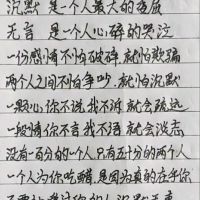 沉默 是一个人最大的
无言 是一个人心碎的哭泣
一份感情不怕破碎.就怕欺骗
两个人之间不怕争吵.就怕沉默
一颗心你不说我不诉就会疏远
一段情你不言我不语就会淡忘
没有一百分的一个人只有五十分的两个人
一个人为你吃醋.是因为真的在乎你